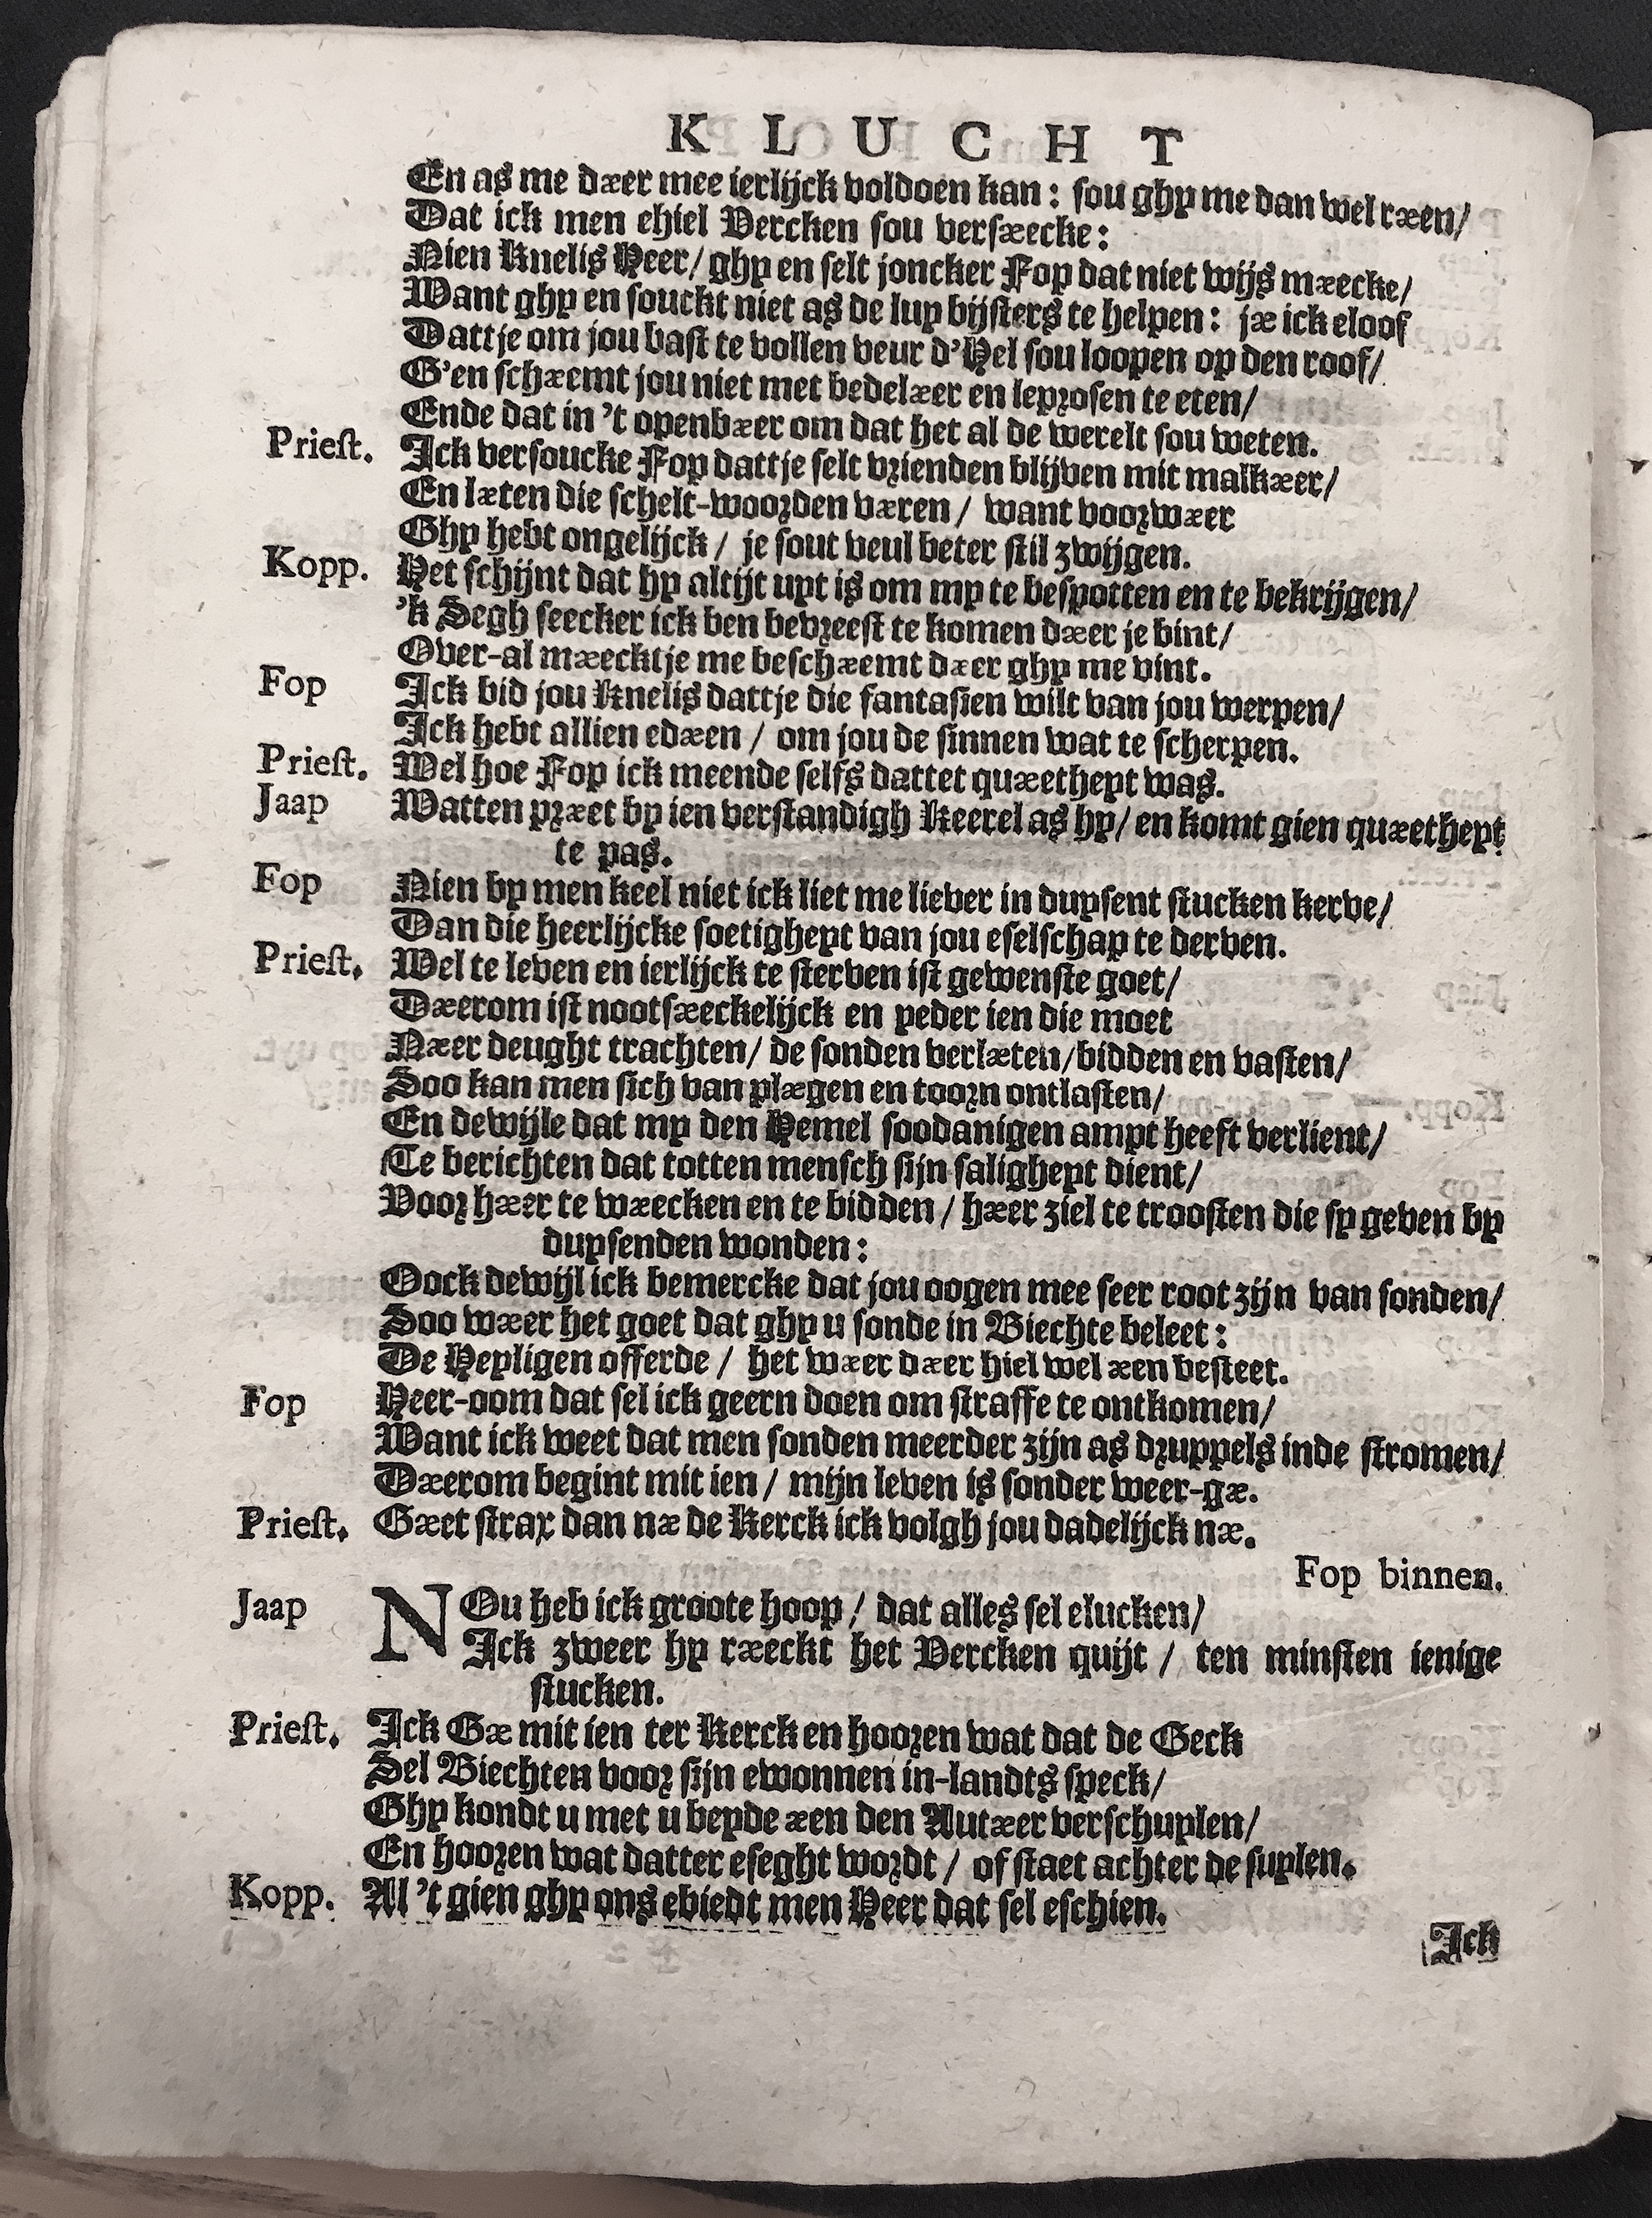 KLUCHT
En as me dær mee ierlijck voldoen kan: sou ghy me dan wel ræen/
Dat ick men ehiel Vercken sou versæecke:
Nien Knelis Heer/ ghy en selt joncker Fop dat niet wijs mæcke/
Want ghy en souckt niet as de luy bijsters te helpen: jæ ick eloof
Dattje om jou bast te vollen veur d'Hel sou loopen op den roof/
G'en schæmt jou niet met bedelær en leprosen te eten/
Ende dat in 't openbær om dat het al de werelt sou weten.
Priest. Ick versoucke Fop dattje selt vrienden blijven mit malkær/
En læten die schelt-woorden væren / want voorwær
Ghy hebt ongelijck / je sout veul beter stil zwijgen.
Kopp. Het schijnt dat hy altijt uyt is om my te bespotten en te bekrijgen/
'k Segh seecker ick ben bevreest te komen dær je bint/
Over-al mæcktje me beschæmt dær ghy me vint.
Fop Ick bid jou Knelis dattje die fantasien wilt van jou werpen/
Ick hebt allien edæn / om jou de sinnen wat te scherpen.
Priest. Wel hoe Fop ick meende selfs dattet quætheyt was.
Jaap Watten præt by ien verstandigh Keerel as hy/ en komt gien quætheyt
te pas.
Fop Nien by men keel niet ick liet me liever in duysent stucken kerve/
Dan die heerlijcke soetigheyt van jou eselschap te derven.
Priest. Wel te leven en ierlijck te sterven ist gewenste goet/
Dærom ist nootsæckelijck en yeder ien die moet
Nær deught trachten/ de sonden verlæten/ bidden en vasten/
Soo kan men sich van plægen en toorn ontlasten/
En dewijle dat my den Hemel soodanigen ampt heeft verlient/
Te berichten dat totten mensch sijn saligheyt dient/
Voor hær te wæcken en te bidden / hær ziel te troosten die sy geven by
duysenden wonden:
Oock dewijl ick bemercke dat jou oogen mee seer root zijn van sonden/
Soo wær het goet dat ghy u sonde in Biechte beleet:
De Heyligen offerde / het wær dær hiel wel æen besteet.
Fop Heer-oom dat sel ick geern doen om straffe te ontkomen/
Want ick weet dat men sonden meerder zijn as druppels inde stromen/
Dærom begint mit ien / mijn leven is sonder weer-gæ.
Priest. Gæt strax dan næ de Kerck ick volgh jou dadelijck næ.
Fop binnen.
Jaap NOu heb ick groote hoop / dat alles sel elucken/
Ick zweer hy ræckt het Vercken quijt / ten minsten ienige
stucken.
Priest. Ick Gæ mit ien ter Kerck en hooren wat dat de Geck
Sel Biechten voor sijn ewonnen in-landts speck/
Ghy kondt u met u beyde æen den Autær verschuylen/
En hooren wat datter eseght wordt / of staet achter de suylen.
Kopp. Al 't gien ghy ons ebiedt men Heer dat sel eschien.
Ick